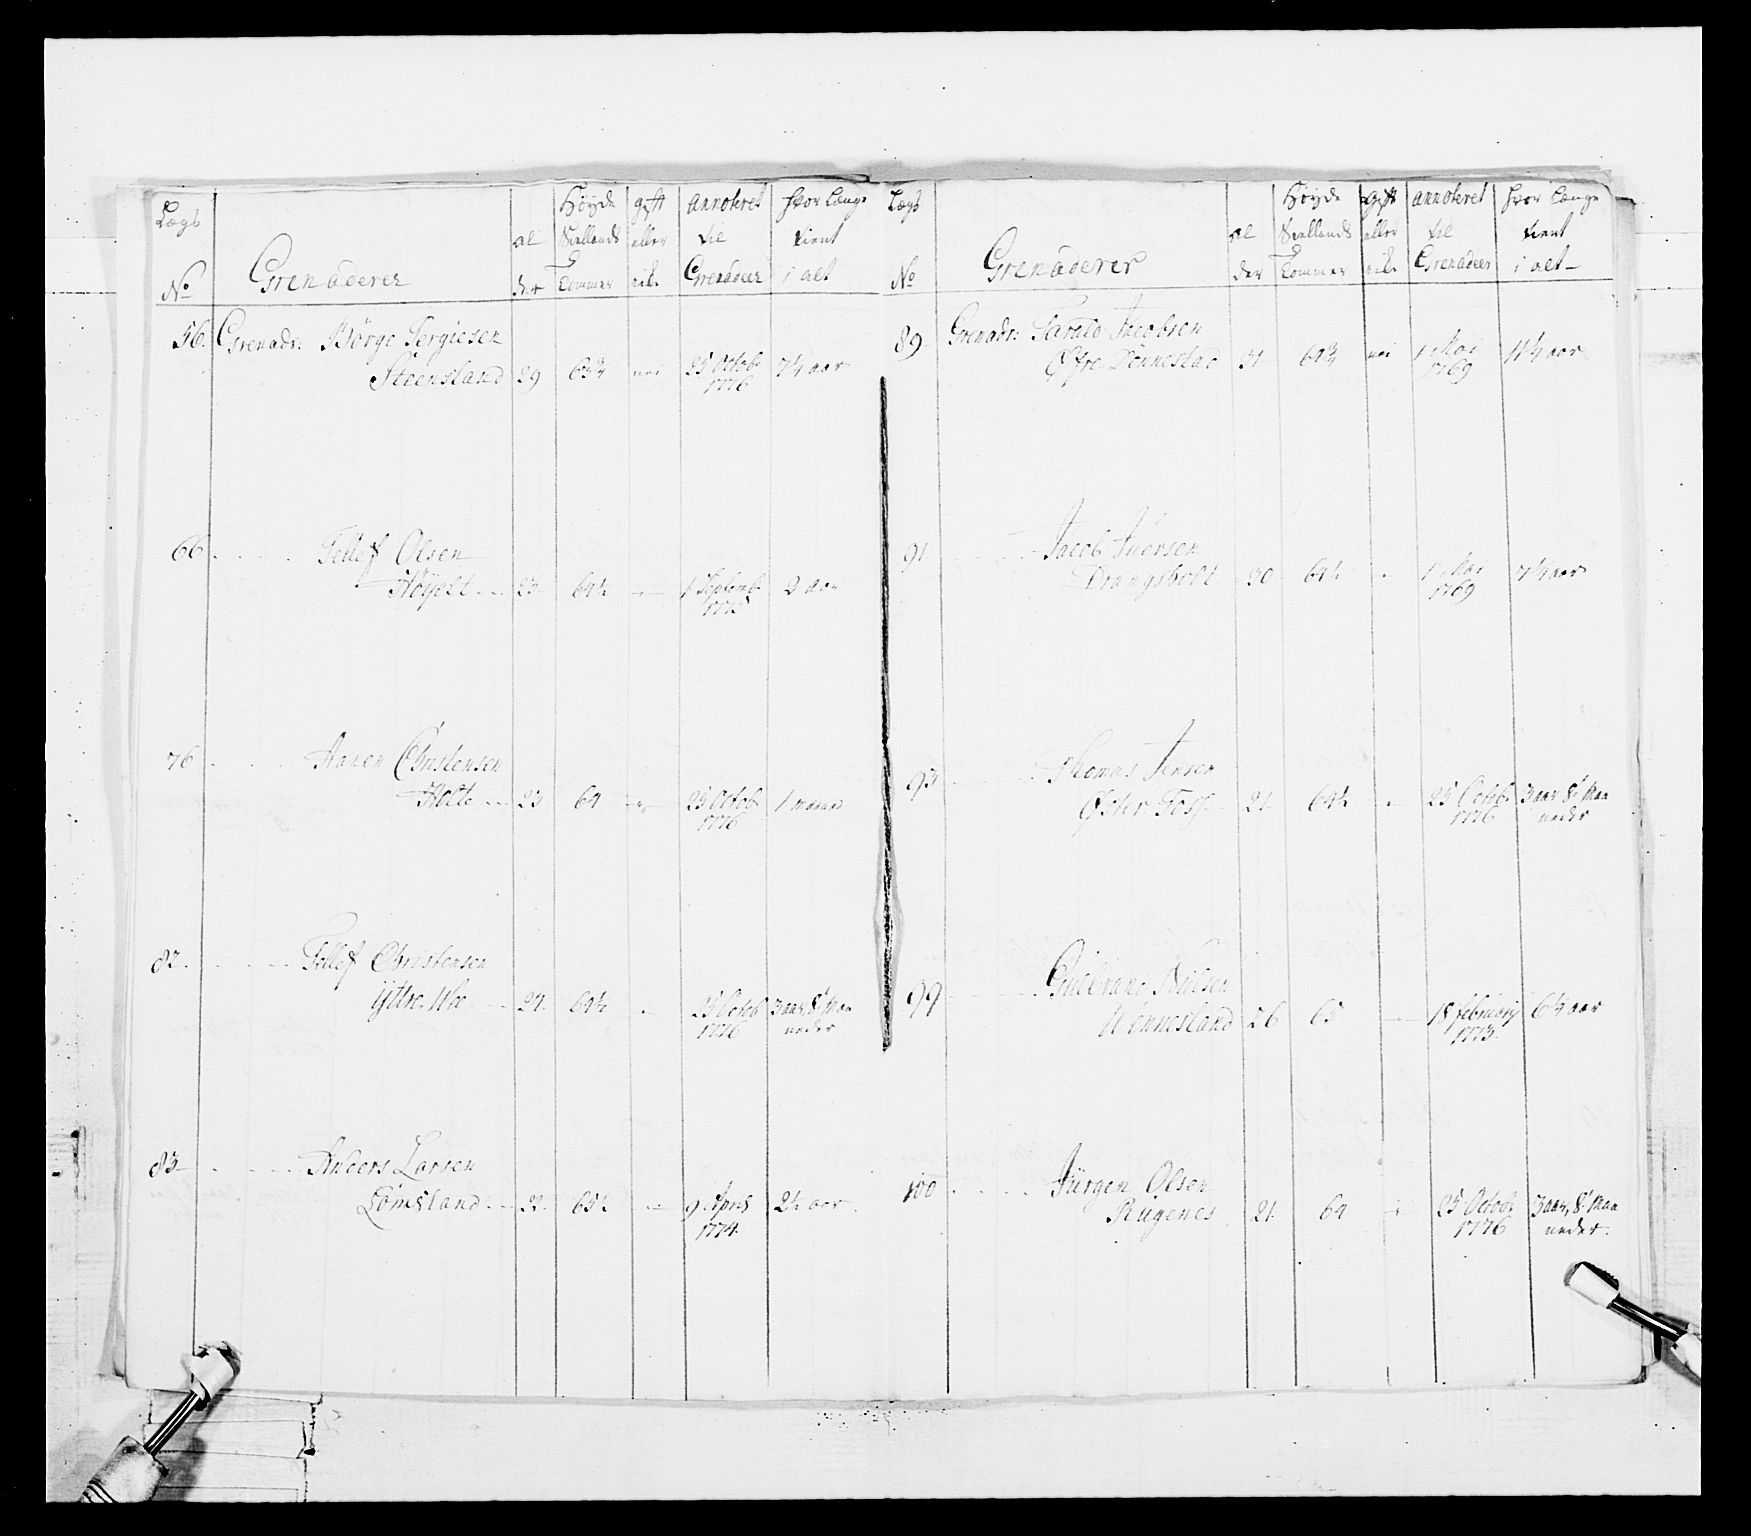 Lægs No Grenaderer al der Höyde Siellands Tommer gift eller ei annoteret til Grenadeer hvor længe tient i alt
56. Grenads: Börge Tergiesen
Steensland 29 63¾ nei 25 Octob 1776 7½ aar
66 Tellef Olsen
Höyolt 23 64½ 1 Septemb 2 aar
76 Aanen Christensen
Holte 23 64 25 Octob 1776 1 maaned
82. Tellef Christensen
Yttre 24. 64½ 25 Octob 1776 3 aar, 8 Maaneder
83 Anders Larsen
Lömsland 22. 65½ 9 April 1774. 2½ aar
Lægs No Grenaderer al der Höyde Siellands Tommer gift eller ei annoteret til Grenadeer hvor længe tient i alt
89 Grenads: Jacobsen
Øfre Dönnestad 31 64¾ nei 1 Mai 1769 11½ aar
91 Jacob Iversen
Drangsholt 30 64½ 1 Mai 1769 7½ aar
93 Thomas Jensen
Øster Foss 21 64½ 25 Octob 1776 3 aar 8 Maaneder
99 Gulbrand Nilsen
Wennesland 26 65 18 february 1773. 6½ aar
100 Jürgen Olsen
Rugenes 21 64 25 Octob 1776 3 aar, 8 Maaneder.